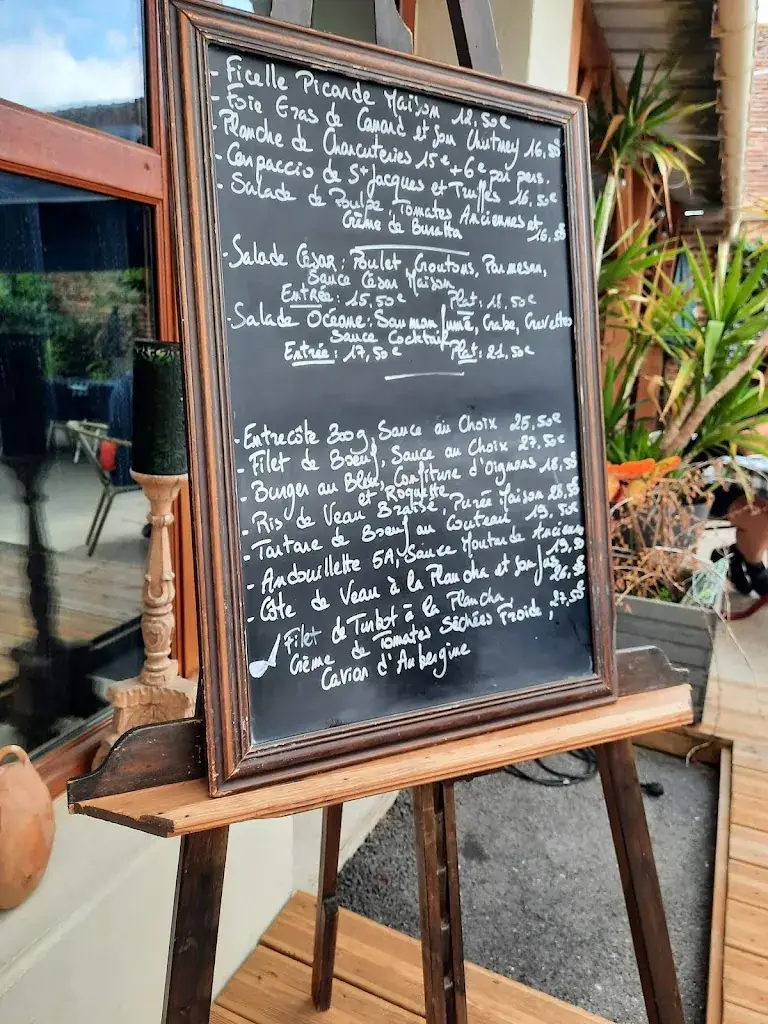 - Ficelle Picarde Maison 12,50€
- Foie Gras de Canard et son Chutney 16,50
- Planche de Charcuteries 15€ +6€ par pers.
- Carpaccio de St Jacques et Truffes 16,50€
- Salade de Poulpe, Tomates Anciennes et
Crème de Buratta 16,50
- Salade César : Poulet, Croutons, Parmesan,
Sauce César Maison
Entrée : 15,50€ Plat : 18,50€
- Salade Océane : Saumon fumé, Crabe, Crevettes
Sauce Cocktail
Entrée : 17,50€ Plat : 21,50€
- Entrecôte 300g, Sauce au Choix 25,50€
- Filet de Boeuf, Sauce au Choix 27,50€
- Burger au Bleu, Confiture d'Oignons 18,50
et Roquette
- Ris de Veau Braisé, Purée Maison 28,50
- Tartare de Boeuf au Couteau 19,50€
- Andouillette 5A, Sauce Moutarde Ancienne
19,50
- Côte de Veau à la Plancha et son Jus
26,50
Filet de Turbot à la Plancha,
Crème de Tomates Séchées Froide, 27,50
Caviar d'Aubergine